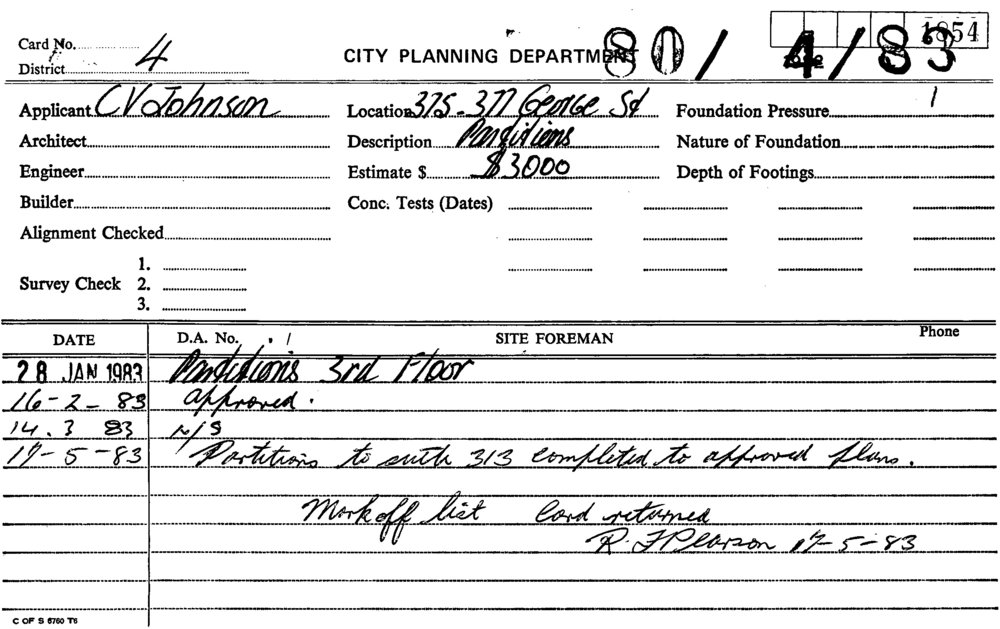 1854
Card No. 4 CITY PLANNING DEPARTMENT 80/ 4/83
District
Applicant CV Johnson Location 375-377 George St Foundation Pressure
Architect Description Partitions Nature of Foundation
Engineer Estimate $ $3000 Depth of Footings
Builder Conc. Tests (Dates)
Alignment Checked
1.
Survey Check 2.
3.
DATE D.A. No. SITE FOREMAN Phone
28 JAN 1983 Partitions 3rd Floor
16-2-83 approved.
14.3 83 N/S
17-5-83 Partitions to suite 313 completed to approved plans.
Mark off list Card returned
R. F Pearson 17-5-83
C OF S 6760 T6